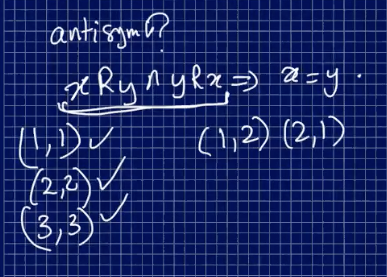 antisym?
xRy ∧ yRx ⇒ x = y.
(1,1) ✓ (1,2) (2,1)
(2,2) ✓
(3,3) ✓